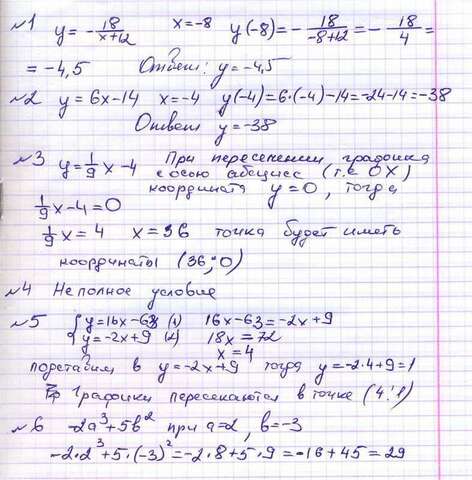 №1 y = -18/(x+12) x=-8 y(-8)=-18/(-8+12)=-18/4=
=-4,5 Ответ: y=-4,5
№2 y=6x-14 x=-4 y(-4)=6·(-4)-14=-24-14=-38
Ответ y=-38
№3 y=1/9x-4 При пересечении графика
с осью абсцисс (т.е OX)
координата y=0, тогда
1/9x-4=0
1/9x=4 x=36 точка будет иметь
координаты (36;0)
№4 Неполное условие
№5 {y=16x-63 (1) 16x-63=-2x+9
{y=-2x+9 (2) 18x=72
x=4
подставим в y=-2x+9 тогда y=-2·4+9=1
Графики пересекаются в точке (4;1)
№6 -2a³+5b² при a=2, b=-3
-2·2³+5·(-3)²=-2·8+5·9=-16+45=29